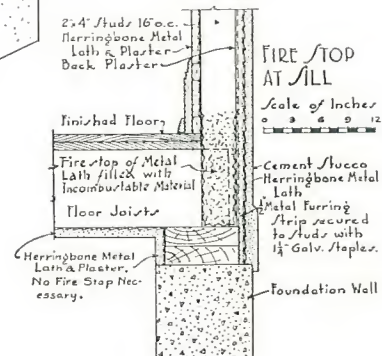 2x4" Studs 16" o.c.
Herringbone Metal
Lath & Plaster
Back Plaster
FIRE STOP
AT SILL
Scale of Inches
0 3 6 9 12
Finished Floor
Fire stop of Metal
Lath filled with
Incombustable Material
Floor Joists
Cement Stucco
Herringbone Metal
Lath
1/2" Metal Furring
Strip secured
to studs with
1 1/4" Galv. Staples.
Herringbone Metal
Lath & Plaster.
No Fire Stop Nec-
essary.
Foundation Wall